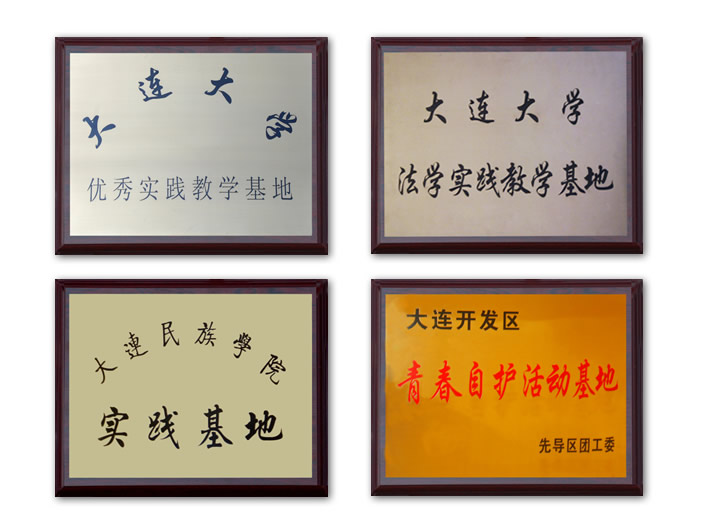 大连大学
优秀实践教学基地
大连大学
法学实践教学基地
大連民族學院
实践基地
大连开发区
青春自护活动基地
先导区团工委